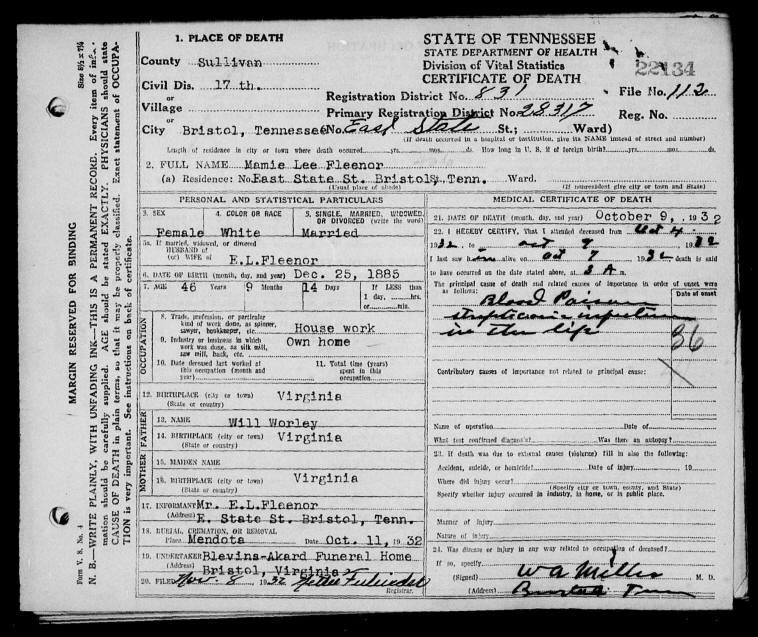 1. PLACE OF DEATH
County Sullivan
Civil Dis. 17 th.
or
Village
or
City Bristol, Tennessee No. East State St.; Ward)
STATE OF TENNESSEE
STATE DEPARTMENT OF HEALTH
Division of Vital Statistics
CERTIFICATE OF DEATH
22134
Registration District No. 831 File No. 112
Primary Registration District No. 28317 Reg. No.
(If death occurred in a hospital or institution, give its NAME instead of street and number)
Length of residence in city or town where death occurred yrs. mos. ds. How long in U. S. if of foreign birth? yrs. mos. ds.
2. FULL NAME Mamie Lee Fleenor
(a) Residence: No. East State St. Bristol St., Tenn. Ward.
(Usual place of abode) (If nonresident give city or town and State)
PERSONAL AND STATISTICAL PARTICULARS
3. SEX 4. COLOR OR RACE 5. SINGLE, MARRIED, WIDOWED, OR DIVORCED (write the word)
Female White Married
5a. If married, widowed, or divorced
HUSBAND of
(or) WIFE of E.L.Fleenor
6. DATE OF BIRTH (month, day, and year) Dec. 25, 1885
7. AGE 46 Years 9 Months 14 Days If LESS than
1 day, hrs.
or min.
OCCUPATION
8. Trade, profession, or particular
kind of work done, as spinner,
sawyer, bookkeeper, etc. House work
9. Industry or business in which
work was done, as silk mill,
saw mill, bank, etc. Own home
10. Date deceased last worked at
this occupation (month and
year)
11. Total time (years)
spent in this
occupation
12. BIRTHPLACE (city or town) Virginia
(State or country)
FATHER
13. NAME Will Worley
14. BIRTHPLACE (city or town) Virginia
(State or country)
MOTHER
15. MAIDEN NAME
16. BIRTHPLACE (city or town) Virginia
(State or country)
17. INFORMANT Mr. E.L.Fleenor
(Address) E. State St. Bristol, Tenn.
18. BURIAL, CREMATION, OR REMOVAL
Place Mendota Date Oct. 11, 1932
19. UNDERTAKER Blevins-Akard Funeral Home
(Address) Bristol, Virginia
20. FILED Nov. 8, 1932
Registrar.
MEDICAL CERTIFICATE OF DEATH
21. DATE OF DEATH (month, day, and year) October 9, , 1932
22. I HEREBY CERTIFY, That I attended deceased from Oct 4
1932, to Oct 9 1932
I last saw alive on Oct 7 1932 death is said
to have occurred on the date stated above, at 3 A m.
The principal cause of death and related causes of importance in order of onset were
as follows: Date of onset
Blood Poison
in the lip
36
Contributory causes of importance not related to principal cause:
Name of operation Date of
What test confirmed diagnosis? Was there an autopsy?
23. If death was due to external causes (violence) fill in also the following:
Accident, suicide, or homicide? Date of injury 19
Where did injury occur?
(Specify city or town, county, and State)
Specify whether injury occurred in industry, in home, or in public place.
Manner of injury
Nature of injury
24. Was disease or injury in any way related to occupation of deceased?
If so, specify
(Signed) W A Miller M. D.
(Address) Bristol Tenn
MARGIN RESERVED FOR BINDING
Form V. S. No. 4
Size 8½ x 7½
N. B.—WRITE PLAINLY, WITH UNFADING INK—THIS IS A PERMANENT RECORD. Every item of infor-
mation should be carefully supplied. AGE should be stated EXACTLY. PHYSICIANS should state
CAUSE OF DEATH in plain terms, so that it may be properly classified. Exact statement of OCCUPA-
TION is very important. See instructions on back of certificate.